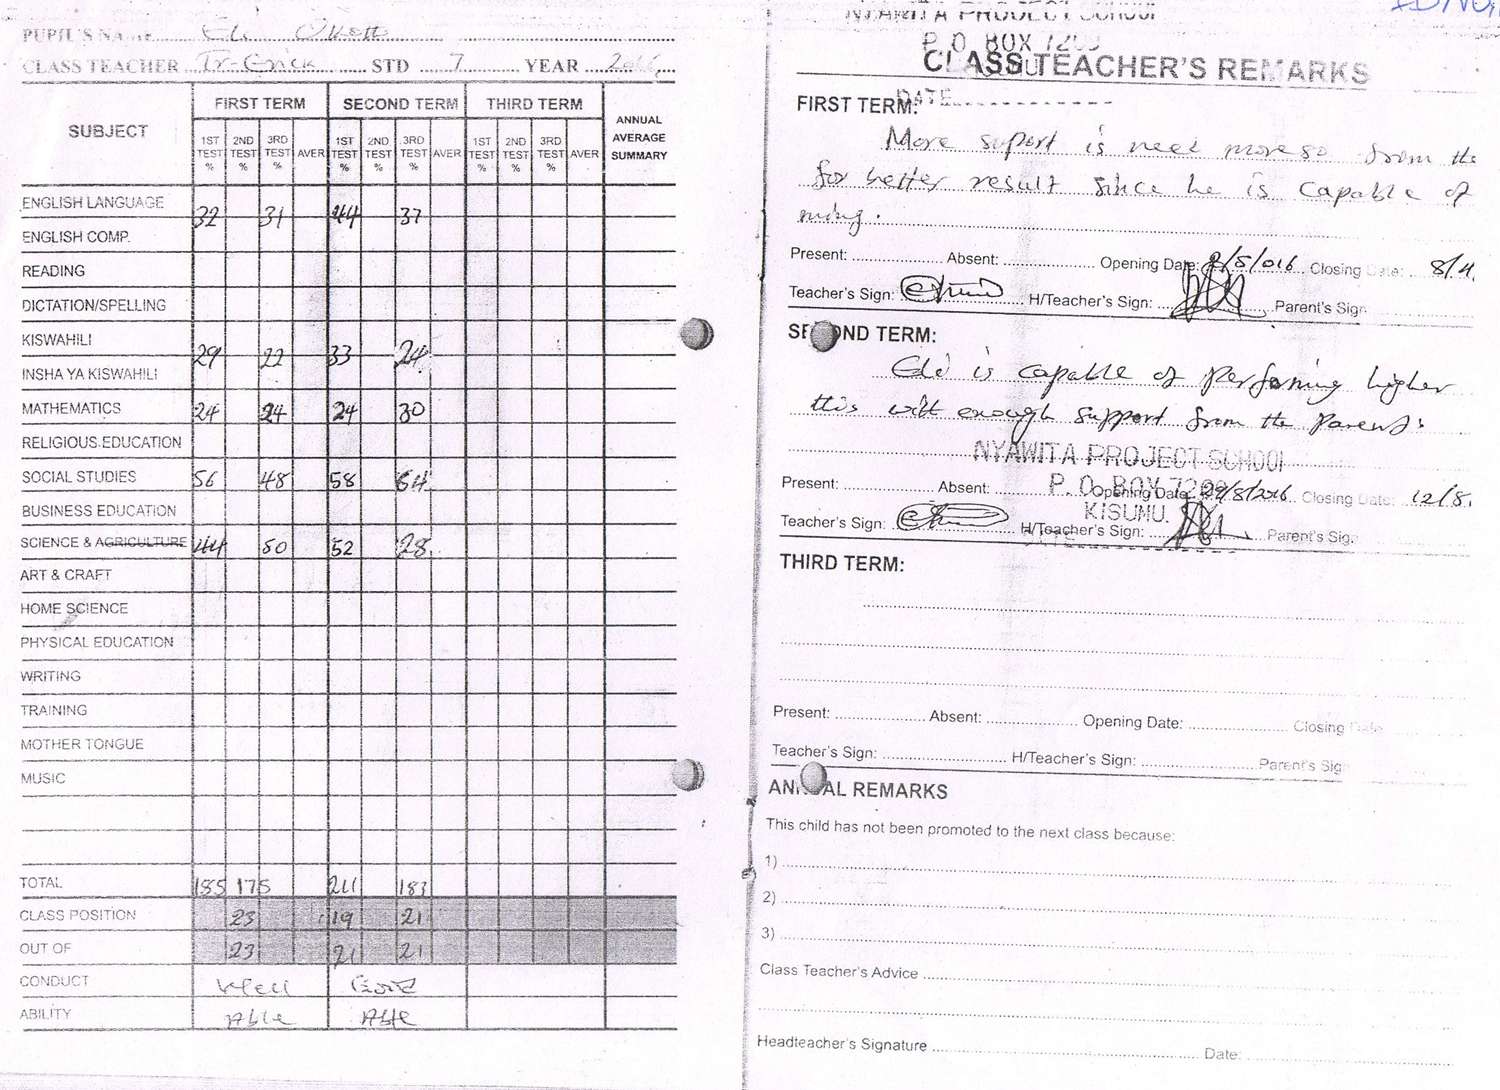 PUPIL'S NAME Eli Okoth
CLASS TEACHER Tr. Erick STD 7 YEAR 2016
SUBJECT FIRST TERM SECOND TERM THIRD TERM ANNUAL AVERAGE SUMMARY
1ST TEST % 2ND TEST % 3RD TEST % AVER 1ST TEST % 2ND TEST % 3RD TEST % AVER 1ST TEST % 2ND TEST % 3RD TEST % AVER
ENGLISH LANGUAGE 32 31 44 37
ENGLISH COMP.
READING
DICTATION/SPELLING
KISWAHILI 29 22 33 24
INSHA YA KISWAHILI
MATHEMATICS 24 24 24 30
RELIGIOUS EDUCATION
SOCIAL STUDIES 56 48 58 64
BUSINESS EDUCATION
SCIENCE & AGRICULTURE 44 50 52 28
ART & CRAFT
HOME SCIENCE
PHYSICAL EDUCATION
WRITING
TRAINING
MOTHER TONGUE
MUSIC
TOTAL 185 175 211 183
CLASS POSITION 23 19 21
OUT OF 23 21 21
CONDUCT Well Good
ABILITY Able Able
NYAWITA PROJECT SCHOOL
P.O. BOX 7209
CLASS TEACHER'S REMARKS
DATE
FIRST TERM:
More suport is need more so from the
for better result since he is capable of
Present: Absent: Opening Date: 2/5/016 Closing Date: 8/4
Teacher's Sign: H/Teacher's Sign: Parent's Sign
SECOND TERM:
Eli is capable of performing higher
this with enough support from the Parent.
NYAWITA PROJECT SCHOOL
P.O. BOX 7209
Present: Absent: Opening Date: 29/8/2016 Closing Date: 12/8.
KISUMU
Teacher's Sign: H/Teacher's Sign: Parent's Sig.
DATE
THIRD TERM:
Present: Absent: Opening Date: Closing Date
Teacher's Sign: H/Teacher's Sign: Parent's Sig
ANNUAL REMARKS
This child has not been promoted to the next class because:
1)
2)
3)
Class Teacher's Advice
Headteacher's Signature Date: